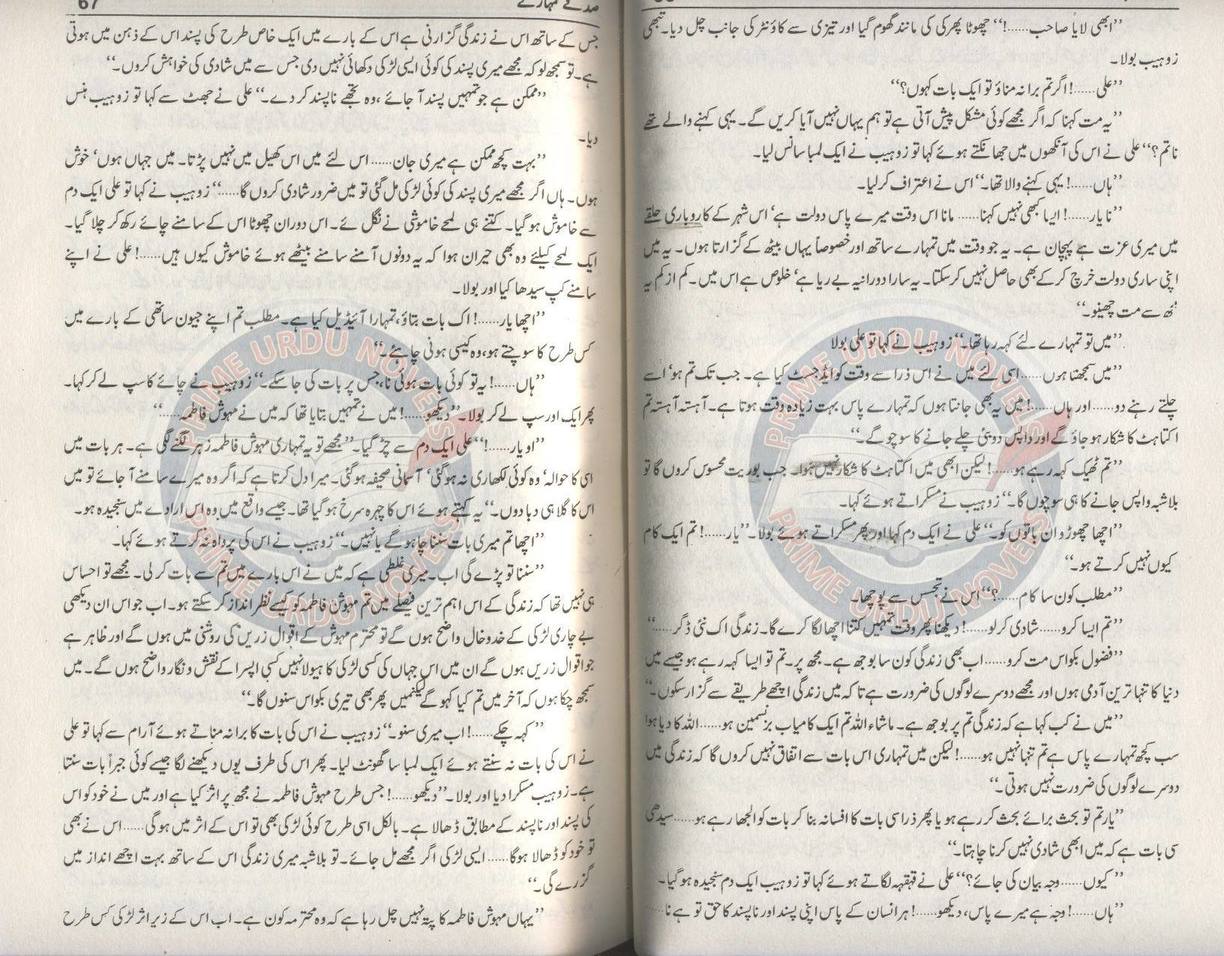 ”ابھی لایا صاحب......!“ چھوٹا پھرکی کی مانند گھوم گیا اور تیزی سے کاؤنٹر کی جانب چل دیا۔ تبھی
زوہیب بولا۔
”علی......! اگر تم برا نہ مناؤ تو ایک بات کہوں؟“
”یہ مت کہنا کہ اگر مجھے کوئی مشکل پیش آتی ہے تو ہم یہاں نہیں آیا کریں گے۔ یہی کہنے والے تھے
نا تم؟“ علی نے اس کی آنکھوں میں جھانکتے ہوئے کہا تو زوہیب نے ایک لمبا سانس لیا۔
”ہاں......! یہی کہنے والا تھا۔“ اس نے اعتراف کرلیا۔
”نا یار......! ایسا کبھی نہیں کہنا...... مانا اس وقت میرے پاس دولت ہے‘ اس شہر کے کاروباری حلقے
میں میری عزت ہے پہچان ہے۔ یہ جو وقت میں تمہارے ساتھ اور خصوصاً یہاں بیٹھ کے گزارتا ہوں۔ یہ میں
اپنی ساری دولت خرچ کرکے بھی حاصل نہیں کرسکتا۔ یہ سارا دورانیہ بے ریا ہے‘ خلوص ہے اس میں۔ کم از کم یہ
مجھ سے مت چھینو۔“
”میں تو تمہارے لئے کہہ رہا تھا۔“ زوہیب نے کہا تو علی بولا
”میں سمجھتا ہوں...... اسی لئے میں نے اس ذرا سے وقت کو ایڈجسٹ کیا ہے۔ جب تک تم ہو‘ اسے
چلتے رہنے دو...... اور ہاں......! میں یہ بھی جانتا ہوں کہ تمہارے پاس بہت زیادہ وقت ہوتا ہے۔ آہستہ آہستہ تم
اکتاہٹ کا شکار ہو جاؤ گے اور واپس دوبئی چلے جانے کا سوچو گے۔“
”تم ٹھیک کہہ رہے ہو......! لیکن ابھی میں اکتاہٹ کا شکار نہیں ہوا۔ جب بوریت محسوس کروں گا تو
بلاشبہ واپس جانے کا ہی سوچوں گا۔“ زوہیب نے مسکراتے ہوئے کہا۔
”اچھا چھوڑو ان باتوں کو۔“ علی نے ایک دم کہا اور پھر مسکراتے ہوئے بولا۔ ”یار......! تم ایک کام
کیوں نہیں کرتے ہو۔“
”مطلب کون سا کام......؟“ اس نے تجسس سے پوچھا۔
”تم ایسا کرو...... شادی کرلو......! دیکھنا پھر وقت تمہیں کتنا اچھا لگا کرے گا۔ زندگی اک نئی ڈگر......“
”فضول بکواس مت کرو...... اب بھی زندگی کون سا بوجھ ہے۔ مجھ پر۔ تم تو ایسا کہہ رہے ہو جیسے میں
دنیا کا تنہا ترین آدمی ہوں اور مجھے دوسرے لوگوں کی ضرورت ہے تا کہ میں زندگی اچھے طریقے سے گزار سکوں۔“
”میں نے کب کہا ہے کہ زندگی تم پر بوجھ ہے۔ ماشاء اللہ تم ایک کامیاب بزنسمین ہو...... اللہ کا دیا ہوا
سب کچھ تمہارے پاس ہے تم تنہا نہیں ہو......! لیکن میں تمہاری اس بات سے اتفاق نہیں کروں گا کہ زندگی میں
دوسرے لوگوں کی ضرورت نہیں ہوتی۔“
”یار تم تو بحث برائے بحث کر رہے ہو یا پھر ذرا سی بات کا افسانہ بنا کر بات کو الجھا رہے ہو...... سیدھی
سی بات ہے کہ میں ابھی شادی نہیں کرنا چاہتا۔“
”کیوں...... وجہ بیان کی جائے؟“ علی نے قہقہہ لگاتے ہوئے کہا تو زوہیب ایک دم سنجیدہ ہوگیا۔
”ہاں......! وجہ ہے میرے پاس، دیکھو......! ہر انسان کے پاس اپنی پسند اور ناپسند کا حق تو ہے نا......
67
جس کے ساتھ اس نے زندگی گزارنی ہے اس کے بارے میں ایک خاص طرح کی پسند اس کے ذہن میں ہوتی
ہے۔ تو سمجھ لو کہ مجھے میری پسند کی کوئی ایسی لڑکی دکھائی نہیں دی جس سے میں شادی کی خواہش کروں۔“
”ممکن ہے جو تمہیں پسند آ جائے، وہ تجھے ناپسند کر دے۔“ علی نے جھٹ سے کہا تو زوہیب ہنس
دیا۔
”بہت کچھ ممکن ہے میری جان...... اس لئے میں اس کھیل میں نہیں پڑتا۔ میں جہاں ہوں‘ خوش
ہوں۔ ہاں اگر مجھے میری پسند کی کوئی لڑکی مل گئی تو میں ضرور شادی کروں گا......“ زوہیب نے کہا تو علی ایک دم
سے خاموش ہوگیا۔ کتنے ہی لمحے خاموشی نے نگل لئے۔ اس دوران چھوٹا اس کے سامنے چائے رکھ کر چلا گیا۔
ایک لمحے کیلئے وہ بھی حیران ہوا کہ یہ دونوں آمنے سامنے بیٹھے ہوئے خاموش کیوں ہیں......! علی نے اپنے
سامنے کپ سیدھا کیا اور بولا۔
”اچھا یار......! اک بات بتاؤ، تمہارا آئیڈیل کیا ہے۔ مطلب تم اپنے جیون ساتھی کے بارے میں
کس طرح کا سوچتے ہو، وہ کیسی ہونی چاہئے۔“
”ہاں......! یہ تو کوئی بات ہوئی نا، جس پر بات کی جاسکے۔“ زوہیب نے چائے کا سپ لے کر کہا۔
پھر ایک اور سپ لے کر بولا۔ ”دیکھو......! میں نے تمہیں بتایا تھا کہ میں نے مہوش فاطمہ......“
”او یار......!“ علی ایک دم سے چڑ گیا۔ ”مجھے تو یہ تمہاری مہوش فاطمہ زہر لگنے لگی ہے۔ ہر بات میں
اسی کا حوالہ‘ وہ کوئی لکھاری نہ ہوگئی‘ آسمانی صحیفہ ہوگئی۔ میرا دل کرتا ہے کہ اگر وہ میرے سامنے آ جائے تو میں
اس کا گلا ہی دبا دوں۔“ یہ کہتے ہوئے اس کا چہرہ سرخ ہوگیا تھا۔ جیسے واقع میں وہ اس ارادے میں سنجیدہ ہو۔
”اچھا تم میری بات سننا چاہو گے یا نہیں۔“ زوہیب نے اس کی پرواہ نہ کرتے ہوئے کہا۔
”سننا تو پڑے گی اب۔ میری غلطی ہے کہ میں نے اس بارے میں تم سے بات کرلی۔ مجھے تو احساس
ہی نہیں تھا کہ زندگی کے اس اہم ترین فیصلے میں تم مہوش فاطمہ کو کیسے نظر انداز کر سکتے ہو۔ اب جو اس ان دیکھی
بے چاری لڑکی کے خدوخال واضح ہوں گے تو محترم مہوش کے اقوال زریں کی روشنی میں ہوں گے اور ظاہر ہے
جو اقوال زریں ہوں گے ان میں اس جہاں کی کسی لڑکی کا ہیولا نہیں کسی اپسرا کے نقش و نگار واضح ہوں گے۔ میں
سمجھ چکا ہوں کہ آخر میں تم کیا کہو گے لیکن میں پھر بھی تیری بکواس سنوں گا۔“
”کہہ چکے......! اب میری سنو۔“ زوہیب نے اس کی بات کا برا نہ مناتے ہوئے آرام سے کہا تو علی
نے اس کی بات نہ سنتے ہوئے ایک لمبا سا گھونٹ لیا۔ پھر اس کی طرف یوں دیکھنے لگا جیسے کوئی جبراً بات سنتا
ہے۔ زوہیب مسکرا دیا اور بولا۔ ”دیکھو......! جس طرح مہوش فاطمہ نے مجھ پر اثر کیا ہے اور میں نے خود کو اس
کی پسند اور ناپسند کے مطابق ڈھالا ہے۔ بالکل اسی طرح کوئی لڑکی بھی تو اس کے اثر میں ہوگی...... اس نے بھی
تو خود کو ڈھالا ہوگا...... ایسی لڑکی اگر مجھے مل جائے۔ تو بلاشبہ میری زندگی اس کے ساتھ بہت اچھے انداز میں
گزرے گی۔“
”یہاں مہوش فاطمہ کا پتہ نہیں چل رہا ہے کہ وہ محترمہ کون ہے۔ اب اس کے زیر اثر لڑکی کس طرح
PRIME URDU NOVELS
PRIME URDU NOVELS
PRIME URDU NOVELS
PRIME URDU NOVELS